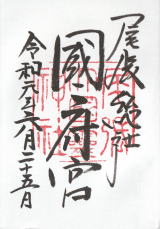 尾張総社
國府宮
令和元年六月二十五日